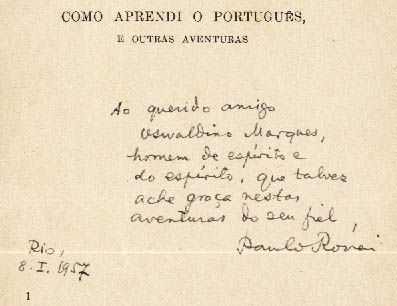 COMO APRENDI O PORTUGUÊS,
E OUTRAS AVENTURAS
Ao querido amigo
Oswaldino Marques,
homem de espírito e
do espírito, que talvez
ache graça nestas
aventuras do seu fiel,
Paulo Rónai
Rio,
8. I. 1957
1